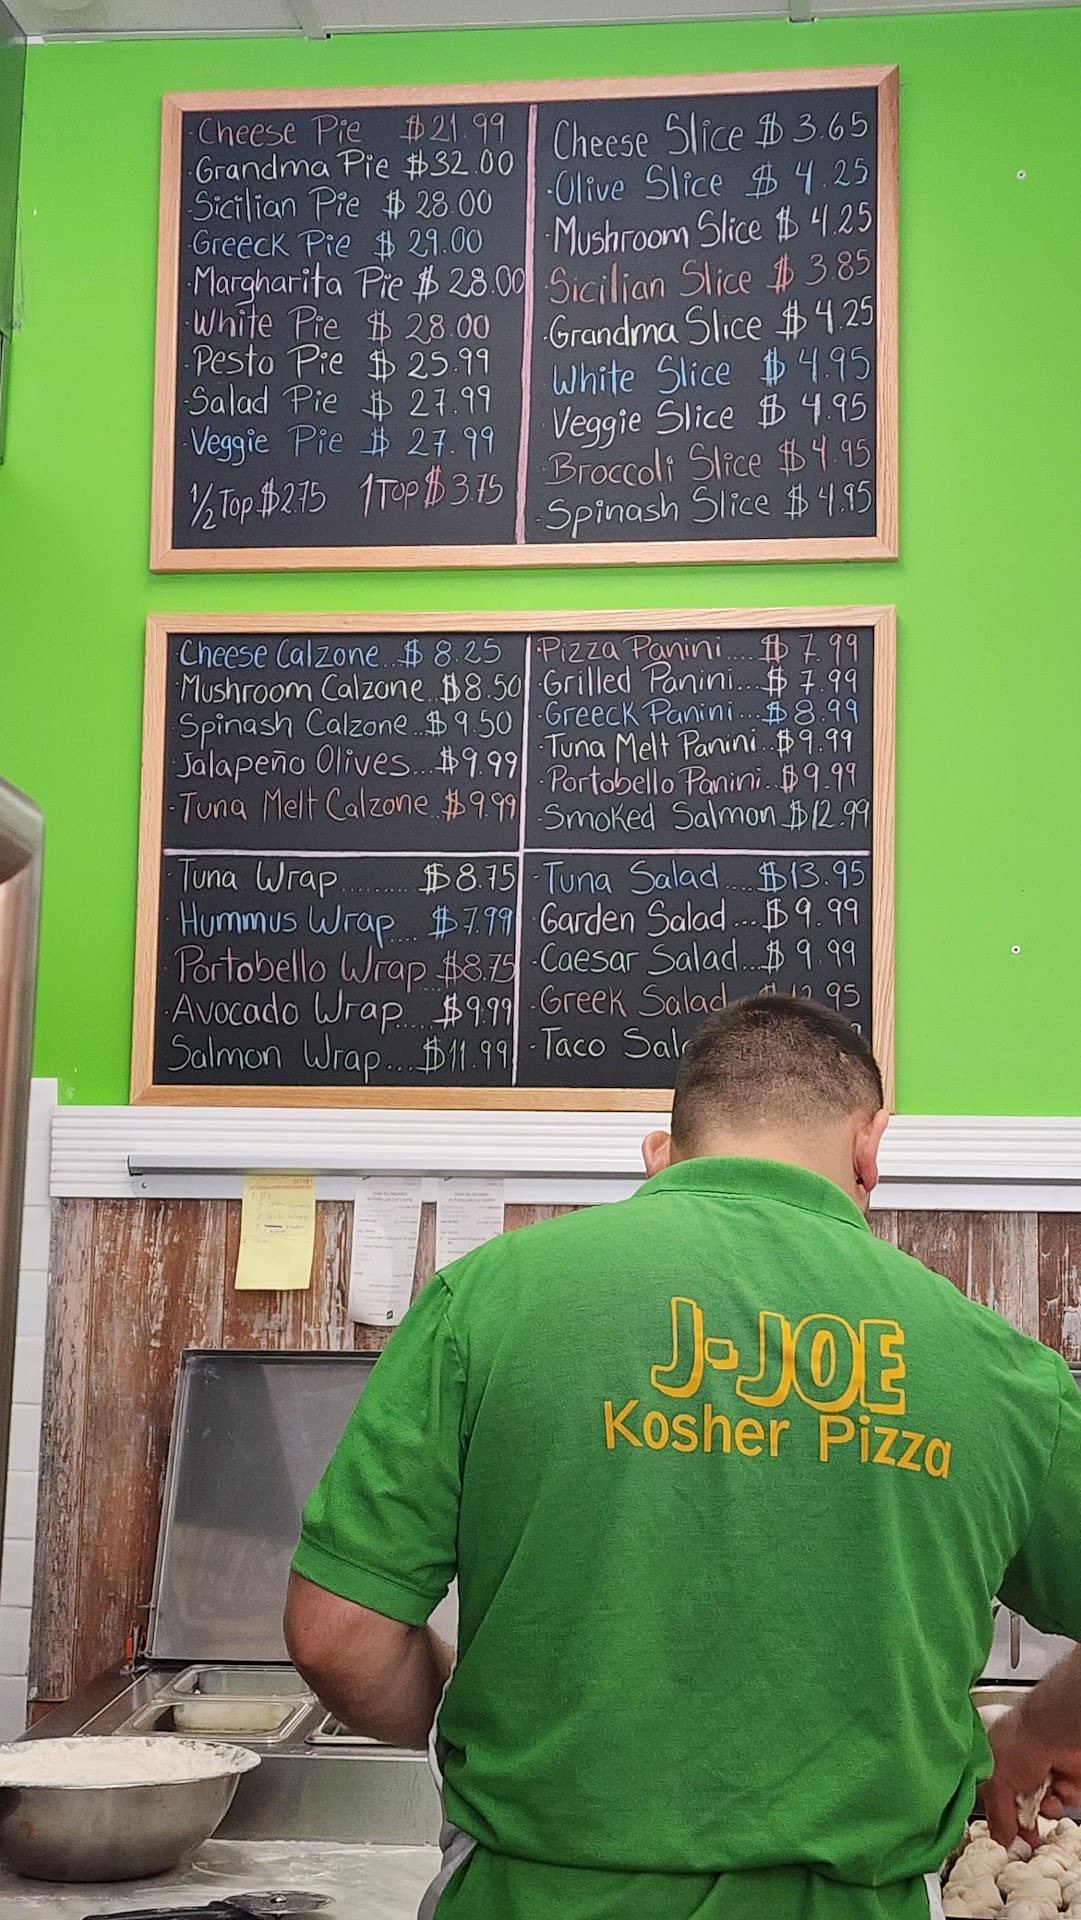 Cheese Pie $21.99
Grandma Pie $32.00
Sicilian Pie $28.00
Greeck Pie $29.00
Margharita Pie $28.00
White Pie $28.00
Pesto Pie $25.99
Salad Pie $27.99
Veggie Pie $27.99
1/2 Top $2.75 1 Top $3.75
Cheese Slice $3.65
Olive Slice $4.25
Mushroom Slice $4.25
Sicilian Slice $3.85
Grandma Slice $4.25
White Slice $4.95
Veggie Slice $4.95
Broccoli Slice $4.95
Spinash Slice $4.95
Cheese Calzone..$8.25
Mushroom Calzone..$8.50
Spinash Calzone..$9.50
Jalapeño Olives...$9.99
Tuna Melt Calzone..$9.99
Pizza Panini....$7.99
Grilled Panini...$7.99
Greeck Panini...$8.99
Tuna Melt Panini..$9.99
Portobello Panini..$9.99
Smoked Salmon $12.99
Tuna Wrap.........$8.75
Hummus Wrap....$7.99
Portobello Wrap..$8.75
Avocado Wrap....$9.99
Salmon Wrap...$11.99
Tuna Salad....$13.95
Garden Salad...$9.99
Caesar Salad...$9.99
Greek Salad
Taco
J-JOE
Kosher Pizza